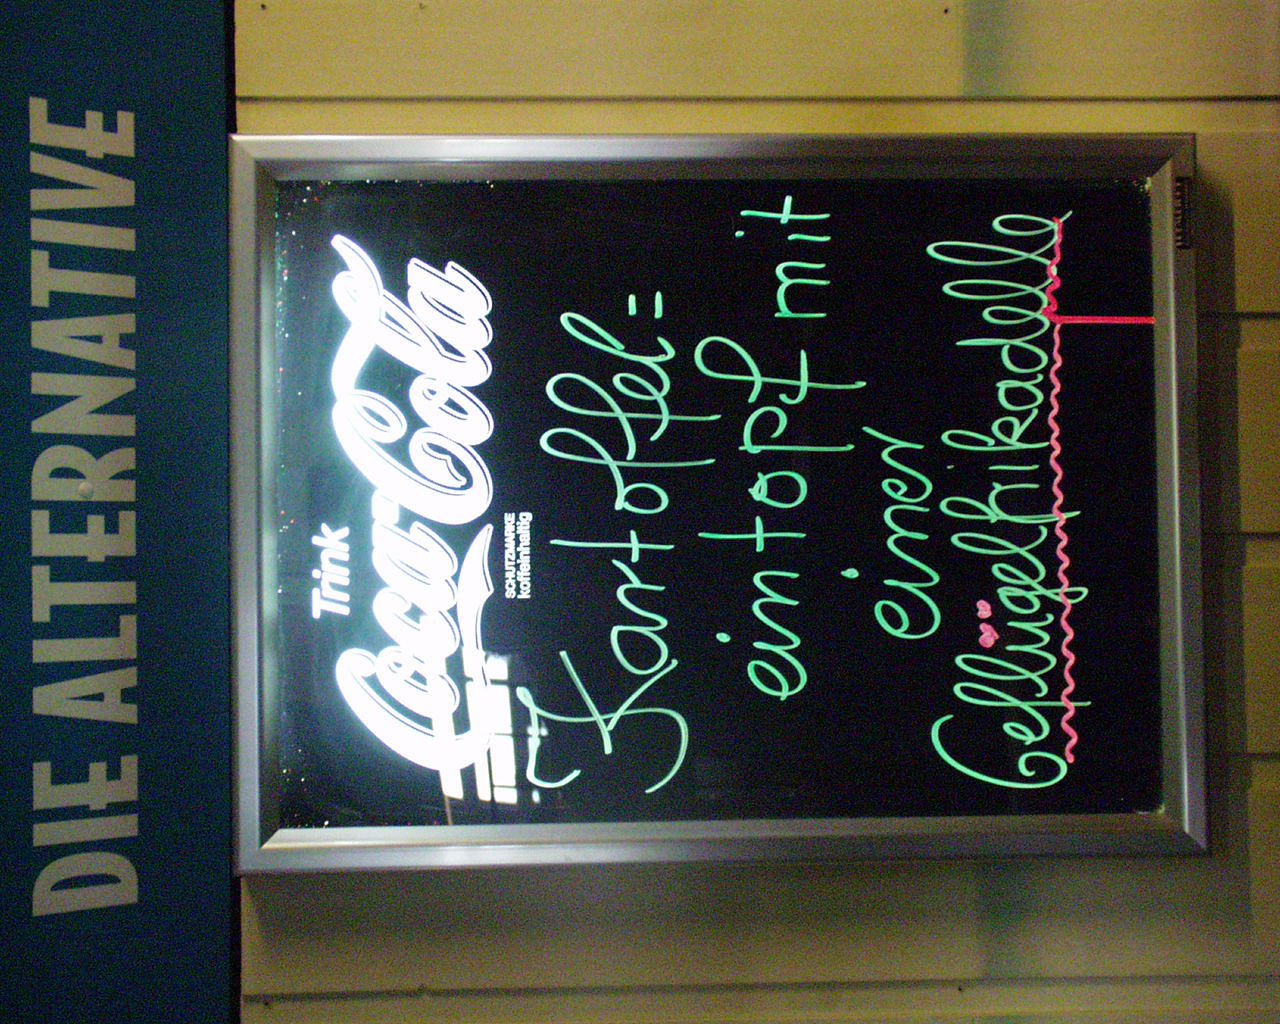 DIE ALTERNATIVE
Trink
Coca-Cola
SCHUTZMARKE
koffeinhaltig
Kartoffel=
eintopf mit
einer
Geflügelhikadelle